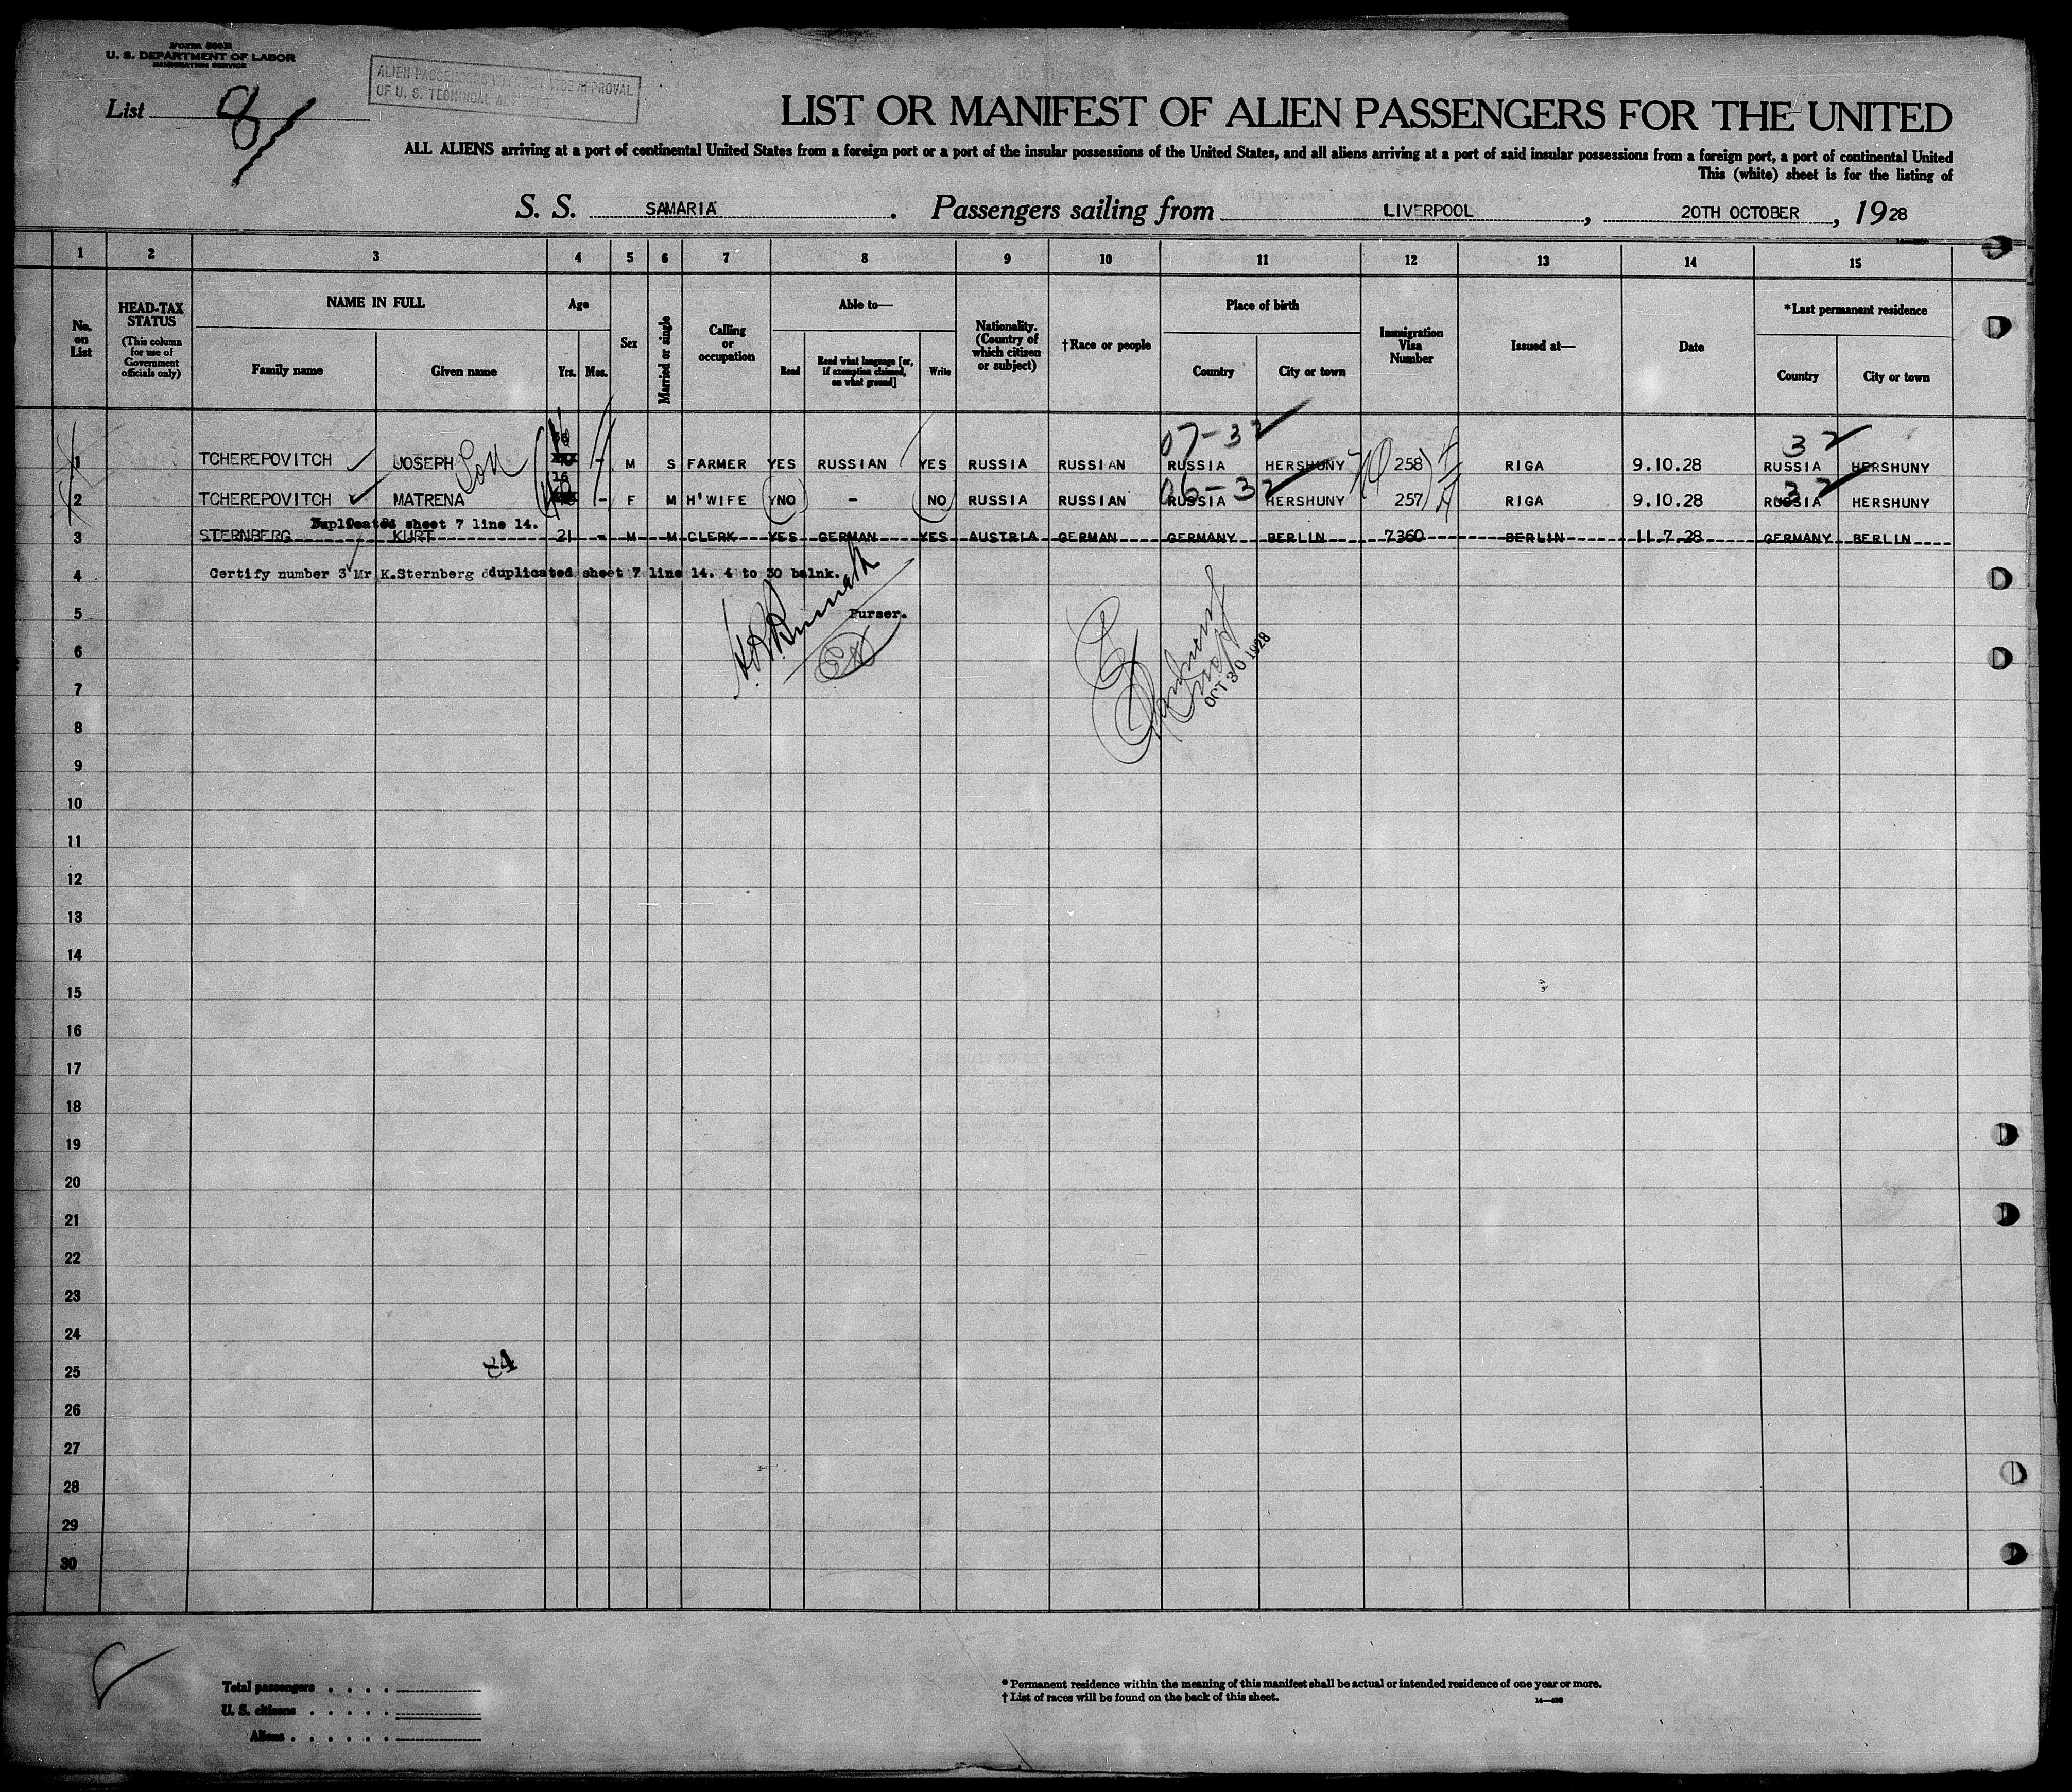 Form 500B
U. S. DEPARTMENT OF LABOR
IMMIGRATION SERVICE
List 8
ALIEN PASSENGERS VISE APPROVAL
OF U. S. TECHNICAL
LIST OR MANIFEST OF ALIEN PASSENGERS FOR THE UNITED
ALL ALIENS arriving at a port of continental United States from a foreign port or a port of the insular possessions of the United States, and all aliens arriving at a port of said insular possessions from a foreign port, a port of continental United
This (white) sheet is for the listing of
S. S. SAMARIA. Passengers sailing from LIVERPOOL, 20TH OCTOBER, 1928
1 2 3 4 5 6 7 8 9 10 11 12 13 14 15
No. on List
HEAD-TAX STATUS
(This column for use of Government officials only)
NAME IN FULL
Family name
Given name
Age
Yrs. Mos.
Sex
Married or single
Calling or occupation
Able to—
Read
Read what language [or, if exemption claimed, on what ground]
Write
Nationality. (Country of which citizen or subject)
†Race or people
Place of birth
Country
City or town
Immigration Visa Number
Issued at—
Date
*Last permanent residence
Country
City or town
07-32 32
1 TCHEREPOVITCH JOSEPH Son 16 - M S FARMER YES RUSSIAN YES RUSSIA RUSSIAN RUSSIA HERSHUNY 258 RIGA 9.10.28 RUSSIA HERSHUNY
06-32 32
2 TCHEREPOVITCH MATRENA - F M H'WIFE NO - NO RUSSIA RUSSIAN RUSSIA HERSHUNY 257 RIGA 9.10.28 RUSSIA HERSHUNY
Duplicated sheet 7 line 14.
3 STERNBERG KURT 21 - M M CLERK YES GERMAN YES AUSTRIA GERMAN GERMANY BERLIN 7360 BERLIN 11.7.28 GERMANY BERLIN
4 Certify number 3 Mr K.Sternberg duplicated sheet 7 line 14. 4 to 30 balnk.
5 Purser.
6
OCT 30 1928
7
8
9
10
11
12
13
14
15
16
17
18
19
20
21
22
23
24
25
26
27
28
29
30
Total passengers . . . .
U. S. citizens . . . . .
Aliens . . . . . .
* Permanent residence within the meaning of this manifest shall be actual or intended residence of one year or more.
† List of races will be found on the back of this sheet.